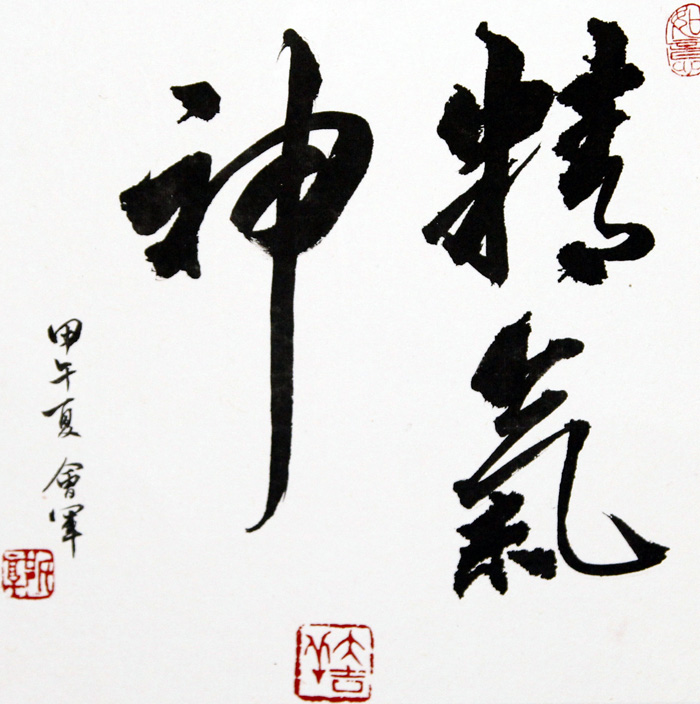 精氣
神
甲午夏 會軍